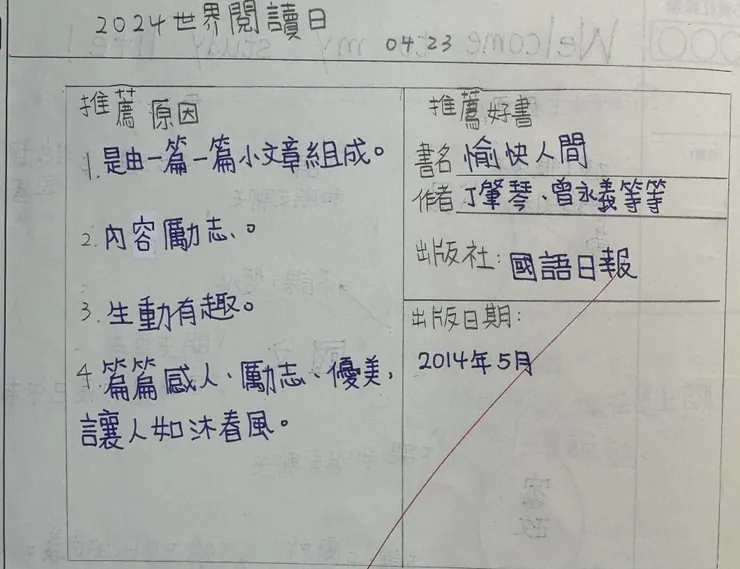 2024世界閱讀日
04.23
推薦原因
1.是由一篇一篇小文章組成。
2.內容勵志、。
3.生動有趣。
4.篇篇感人、勵志、優美,
讓人如沐春風。
推薦好書
書名 愉快人間
作者 丁肇琴、曾永義等等
出版社:國語日報
出版日期:
2014年5月
Welcome to my study life!